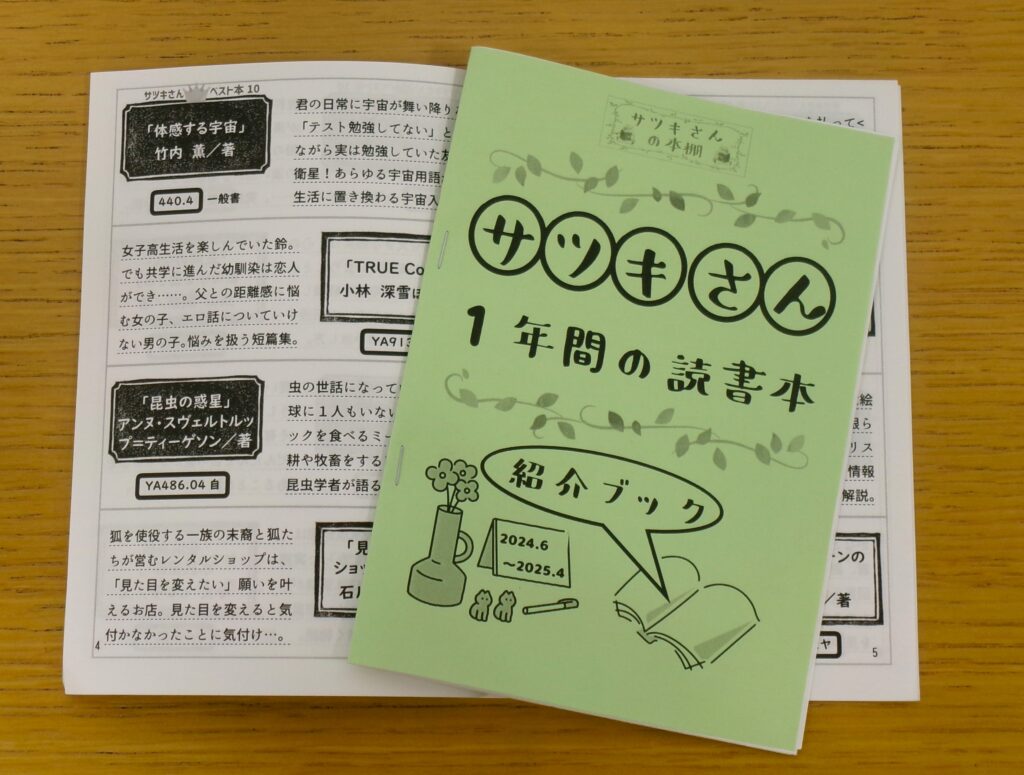 サツキさん ベスト本 10
「体感する宇宙」
竹内 薫／著
440.4 一般書
君の日常に宇宙が舞い降り
「テスト勉強してない」と
ながら実は勉強していた友
衛星！あらゆる宇宙用語
生活に置き換わる宇宙入
女子高生活を楽しんでいた鈴。
でも共学に進んだ幼馴染は恋人
ができ……。父との距離感に悩
む女の子、エロ話についていけ
ない男の子。悩みを扱う短篇集。
「TRUE Co
小林 深雪
YA913
「昆虫の惑星」
アンヌ・スヴェルトルッ
プ=ティーゲソン／著
YA486.04 自
虫の世話になってい
球に１人もいない
ックを食べるミー
耕や牧畜をする
昆虫学者が語る
狐を使役する一族の末裔と狐た
ちが営むレンタルショップは、
「見た目を変えたい」願いを叶
えるお店。見た目を変えると気
付かなかったことに気付け…。
「見
ショッ
石
4
サツキさん
の本棚
サツキさん
1年間の読書本
紹介ブック
2024.6
～2025.4
絵
ら
リス
情報
解説。
ーンの
／著
ヤ
5